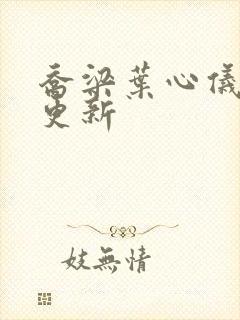 喬梁葉心儀
更新
妓無情